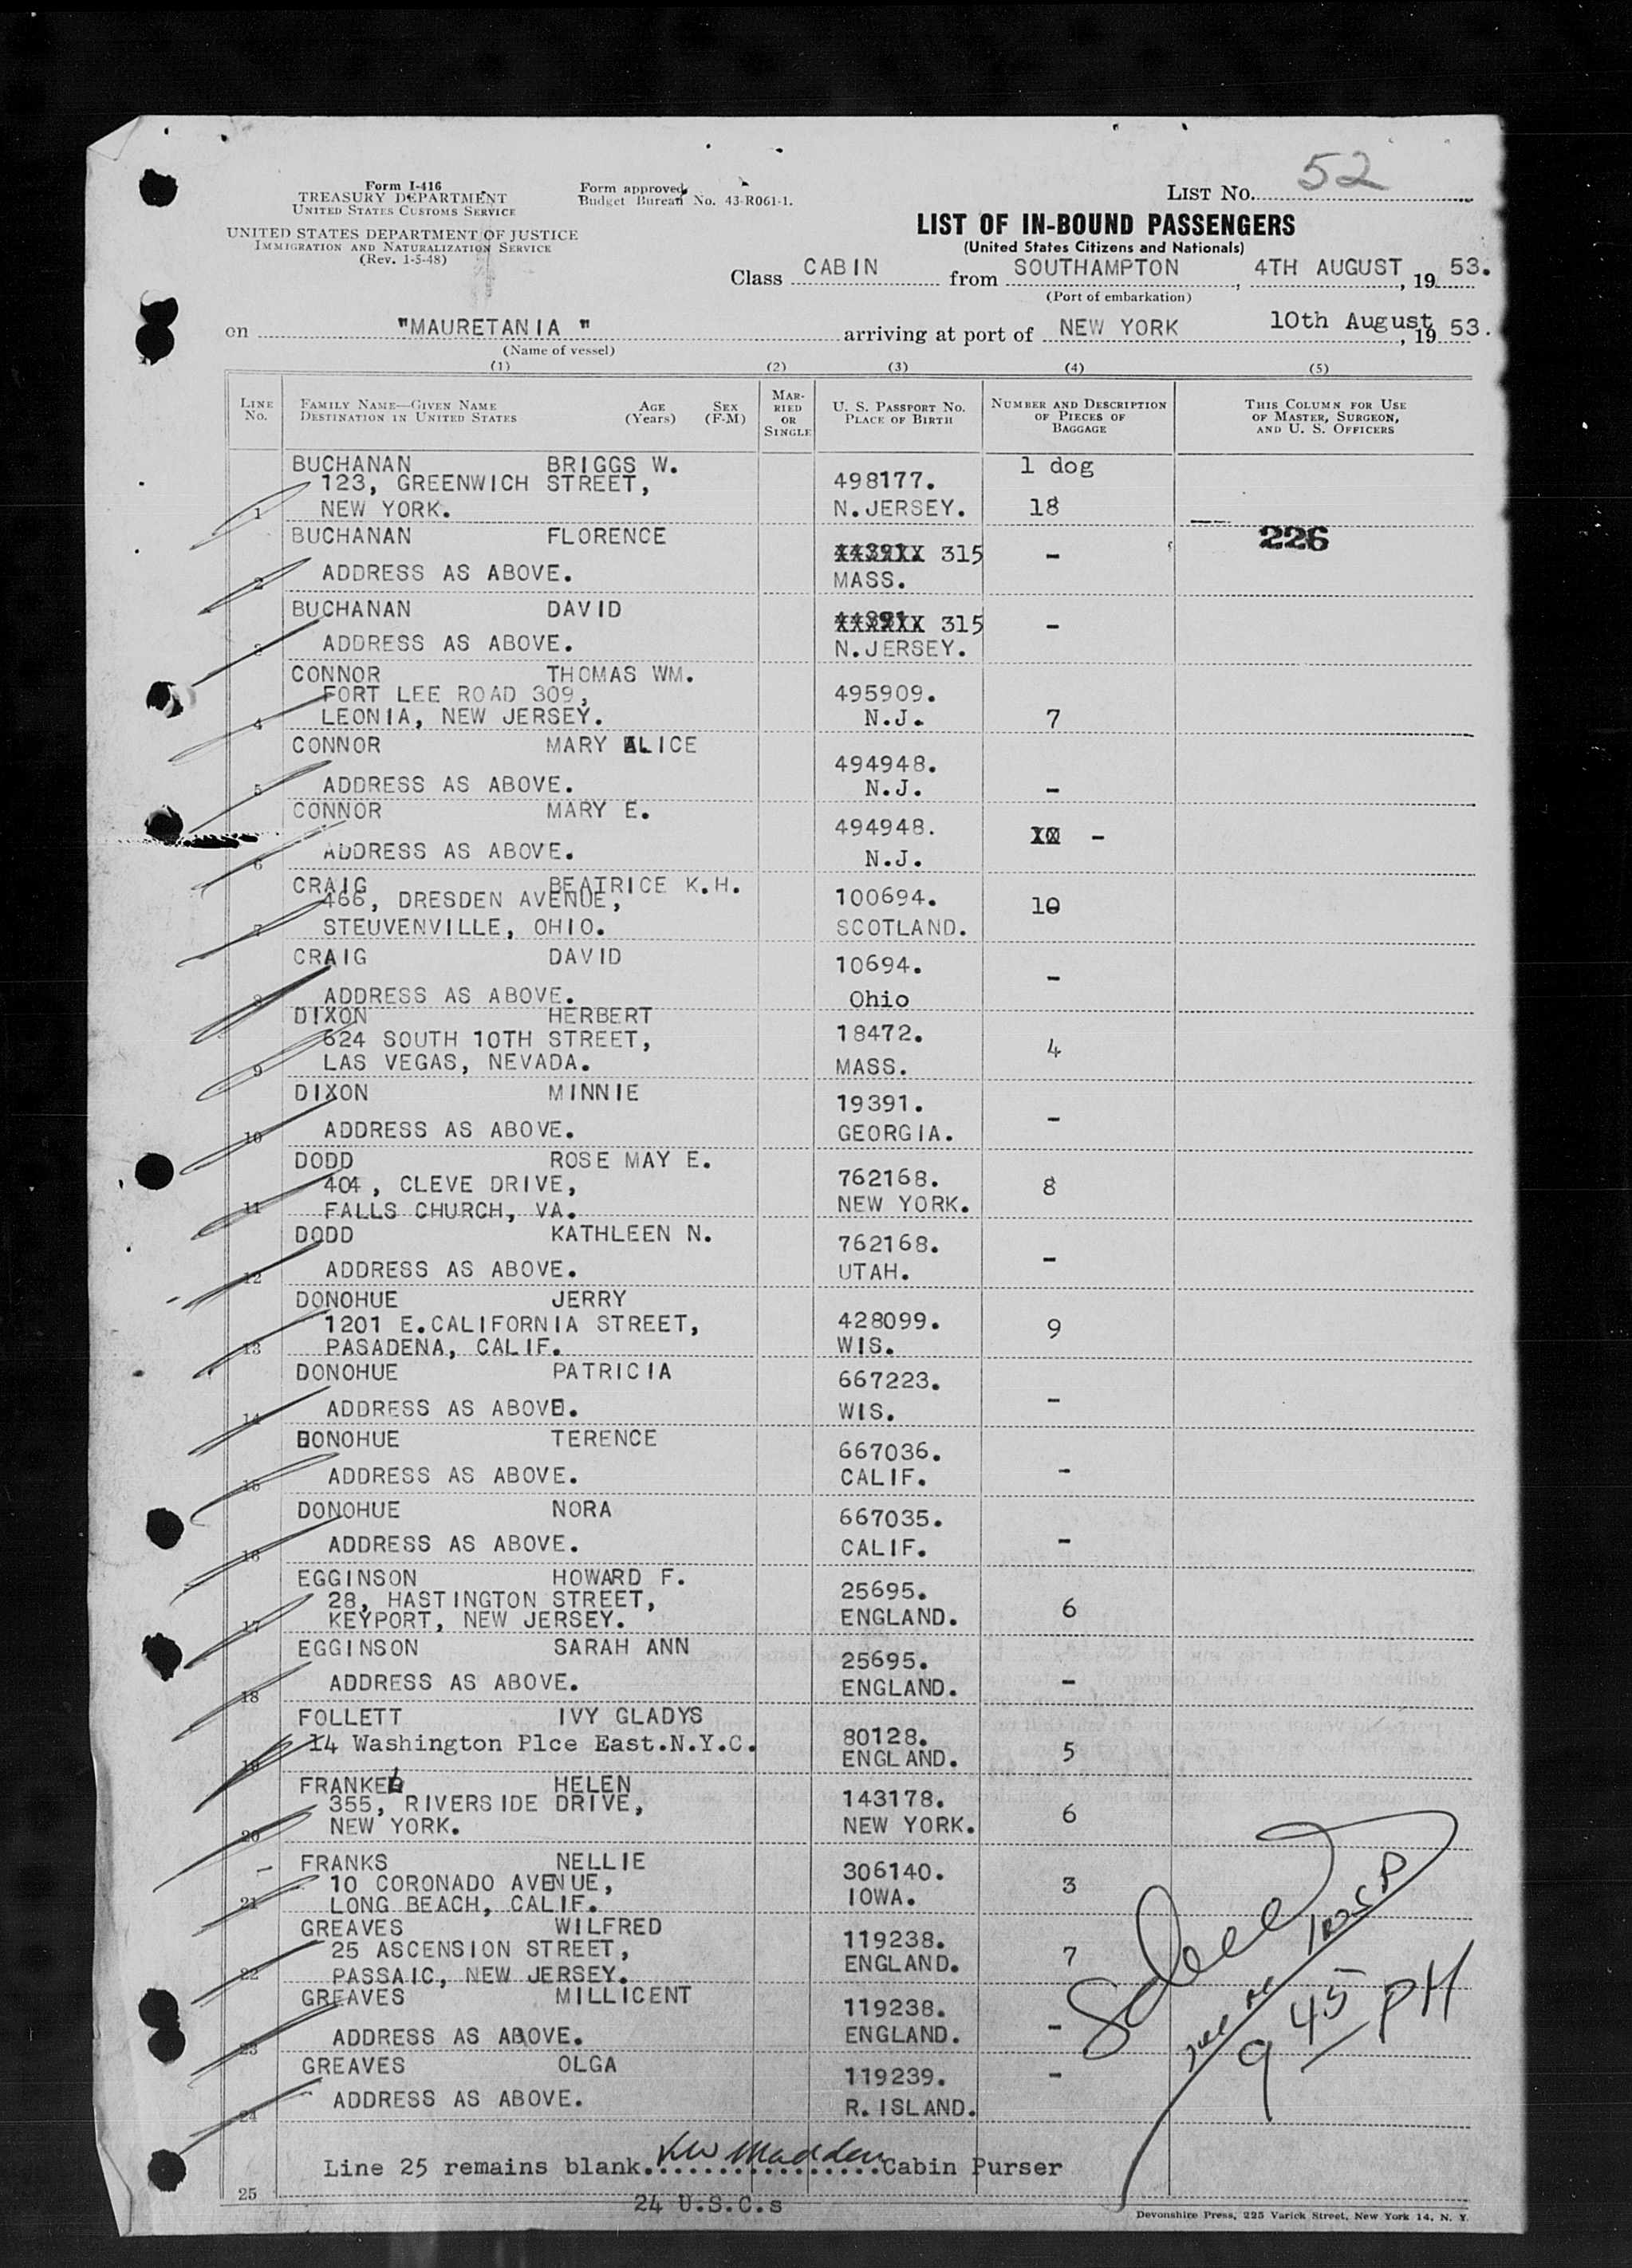 52
Form I-416
TREASURY DEPARTMENT
UNITED STATES CUSTOMS SERVICE
UNITED STATES DEPARTMENT OF JUSTICE
IMMIGRATION AND NATURALIZATION SERVICE
(Rev. 1-5-48)
Form approved
Budget Bureau No. 43-R061-1.
LIST NO.
LIST OF IN-BOUND PASSENGERS
(United States Citizens and Nationals)
Class CABIN from SOUTHAMPTON, 4TH AUGUST, 19 53.
(Port of embarkation)
on "MAURETANIA " arriving at port of NEW YORK 10th August, 19 53.
(Name of vessel)
(1) (2) (3) (4) (5)
LINE NO.
FAMILY NAME—GIVEN NAME AGE SEX
DESTINATION IN UNITED STATES (Years) (F-M)
MARRIED OR SINGLE
U. S. PASSPORT NO.
PLACE OF BIRTH
NUMBER AND DESCRIPTION OF PIECES OF BAGGAGE
THIS COLUMN FOR USE OF MASTER, SURGEON, AND U. S. OFFICERS
BUCHANAN BRIGGS W. 1 dog
123, GREENWICH STREET, 498177.
1 NEW YORK. N.JERSEY. 18
BUCHANAN FLORENCE 226
315 -
2 ADDRESS AS ABOVE. MASS.
BUCHANAN DAVID
315 -
3 ADDRESS AS ABOVE. N.JERSEY.
CONNOR THOMAS WM.
FORT LEE ROAD 309, 495909.
4 LEONIA, NEW JERSEY. N.J. 7
CONNOR MARY ALICE
494948.
5 ADDRESS AS ABOVE. N.J. -
CONNOR MARY E.
494948. -
6 ADDRESS AS ABOVE. N.J.
CRAIG BEATRICE K.H.
466, DRESDEN AVENUE, 100694. 10
7 STEUVENVILLE, OHIO. SCOTLAND.
CRAIG DAVID 10694. -
8 ADDRESS AS ABOVE. Ohio
DIXON HERBERT
624 SOUTH 10TH STREET, 18472. 4
9 LAS VEGAS, NEVADA. MASS.
DIXON MINNIE 19391. -
10 ADDRESS AS ABOVE. GEORGIA.
DODD ROSE MAY E.
404, CLEVE DRIVE, 762168. 8
11 FALLS CHURCH, VA. NEW YORK.
DODD KATHLEEN N. 762168. -
12 ADDRESS AS ABOVE. UTAH.
DONOHUE JERRY
1201 E.CALIFORNIA STREET, 428099. 9
13 PASADENA, CALIF. WIS.
DONOHUE PATRICIA 667223. -
14 ADDRESS AS ABOVE. WIS.
DONOHUE TERENCE 667036.
15 ADDRESS AS ABOVE. CALIF. -
DONOHUE NORA 667035.
16 ADDRESS AS ABOVE. CALIF. -
EGGINSON HOWARD F.
28, HASTINGTON STREET, 25695. 6
17 KEYPORT, NEW JERSEY. ENGLAND.
EGGINSON SARAH ANN 25695.
18 ADDRESS AS ABOVE. ENGLAND. -
FOLLETT IVY GLADYS 80128.
19 14 Washington Plce East.N.Y.C. ENGLAND. 5
FRANKEL HELEN
355, RIVERSIDE DRIVE, 143178. 6
20 NEW YORK. NEW YORK.
FRANKS NELLIE
10 CORONADO AVENUE, 306140. 3
21 LONG BEACH, CALIF. IOWA.
GREAVES WILFRED
25 ASCENSION STREET, 119238. 7
22 PASSAIC, NEW JERSEY. ENGLAND.
GREAVES MILLICENT 119238.
23 ADDRESS AS ABOVE. ENGLAND. -
GREAVES OLGA 119239. -
24 ADDRESS AS ABOVE. R.ISLAND.
9 45 PM
Line 25 remains blank. KW Madden Cabin Purser
25
24 U.S.C.s
Devonshire Press, 225 Varick Street, New York 14, N. Y.